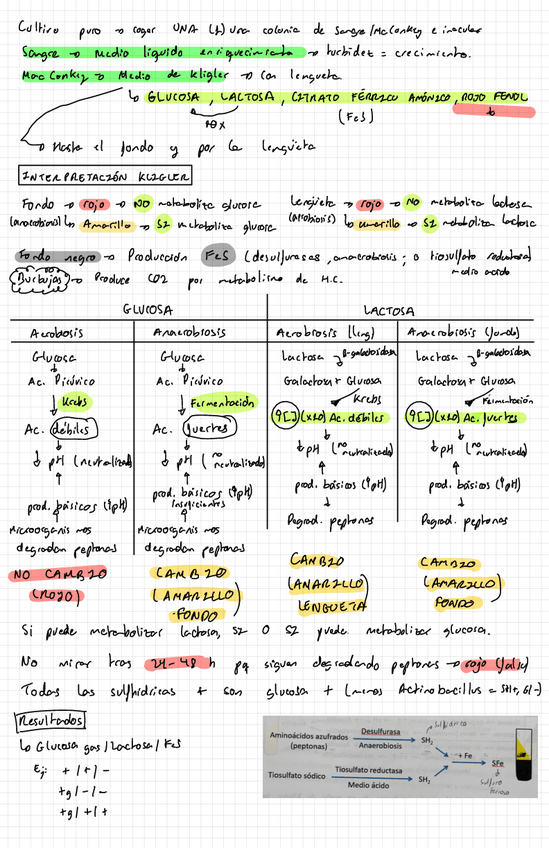 Cultivo puro → coger UNA (1) una colonia de Sangre/McConkey e inocular
Sangre → Medio líquido enriquecimiento → turbidez = crecimiento.
MacConkey → Medio de kligler → con lengueta
↳ GLUCOSA, LACTOSA, CITRATO FÉRRICO AMÓNICO, ROJO FENOL
10x (FeS)
→ Hasta el fondo y por la lengüeta
INTERPRETACIÓN KLIGLER
Fondo → rojo → NO metabolita glucosa
(anaerobiosis) ↳ Amarillo → SI metabolita glucosa
Lengüeta → rojo → NO metaboliza lactosa
(aerobiosis) ↳ amarillo → SI metaboliza lactosa
Fondo negro → Producción FeS (desulfurasas, anaerobiosis; o tiosulfato reductasa)
medio acido
Burbujas → Produce CO2 por metabolismo de H.C.
GLUCOSA LACTOSA
Aerobiosis Anaerobiosis Aerobiosis (leng) Anaerobiosis (fondo)
Glucosa
↓
Ac. Pirúvico
↓ Krebs
Ac. débiles
↓
↓ pH (neutralizado)
↑
prod. básicos (↑pH)
↑
Microorganismos
degradan peptonas
NO CAMBIO
(ROJO)
Glucosa
↓
Ac. Pirúvico
↓ Fermentación
Ac. fuertes
↓
↓ pH (no neutralizado)
↑
prod. básicos (↑pH)
insuficientes
↑
Microorganismos
degradan peptonas
CAMBIO
(AMARILLO)
FONDO
Lactosa → β-galactosidasa
Galactosa + Glucosa
Krebs
↑[ ] (x10) Ac. débiles
↓
↓ pH (no neutralizado)
↑
prod. básicos (↑pH)
↑
Degrad. peptonas
CAMBIO
(AMARILLO)
LENGUETA
Lactosa → β-galactosidasa
Galactosa + Glucosa
Fermentación
↑[ ] (x10) Ac. fuertes
↓
↓ pH (no neutralizado)
↑
prod. básicos (↑pH)
↑
Degrad. peptonas
CAMBIO
(AMARILLO)
FONDO
Si puede metabolizar lactosa, SI O SI puede metabolizar glucosa.
No mirar tras 24-48 h pq siguen degradando peptonas → rojo (falso)
Todas las sulfhídricas + son glucosa + (menos Actinobacillus = SH+, Gl-)
Resultados
↳ Glucosa gas / Lactosa / FeS
Ej: + / + / -
+g / - / -
+g / + / +
sulfhídrico
Aminoácidos azufrados
(peptonas)
Desulfurasa
Anaerobiosis
SH₂
+ Fe
SFe
sulfuro
ferroso
Tiosulfato sódico
Tiosulfato reductasa
Medio ácido
SH₂